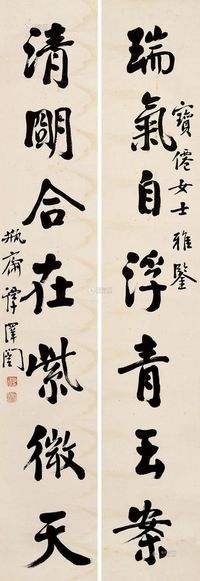 瑞氣自浮青玉案
寶僊女士雅鑒
清關合在紫微天
瓶齋譚澤闓